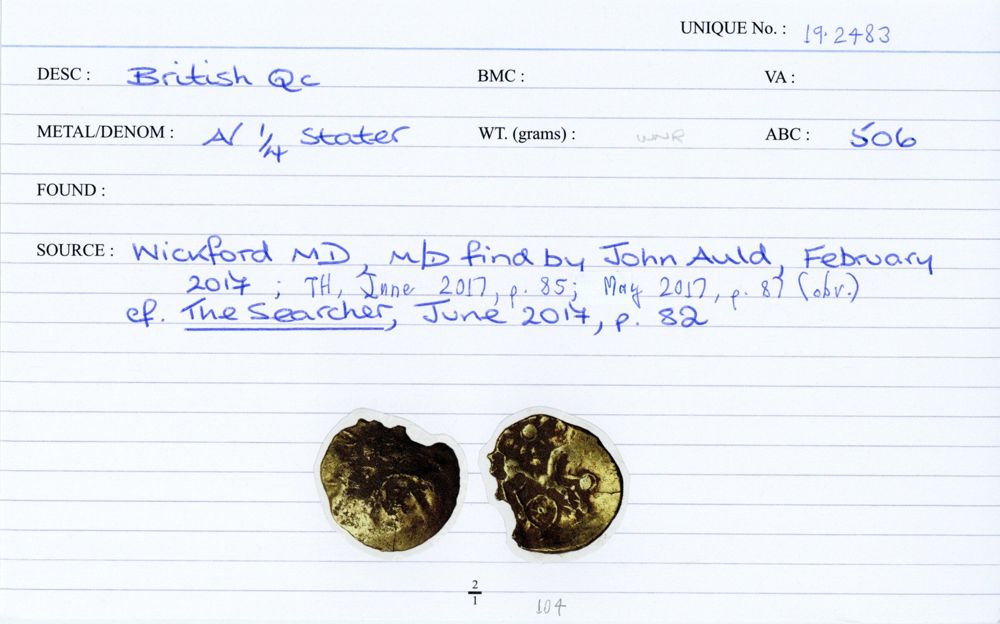 UNIQUE No. : 19.2483
DESC : British Qc BMC : VA :
METAL/DENOM : A/ 1/4 Stater WT. (grams) : WNR ABC : 506
FOUND :
SOURCE : Wickford MD, M/D find by John Auld, February
2017 ; TH, June 2017, p. 85; May 2017, p. 87 (obv.)
cf. The Searcher, June 2017, p. 82
2
1
104